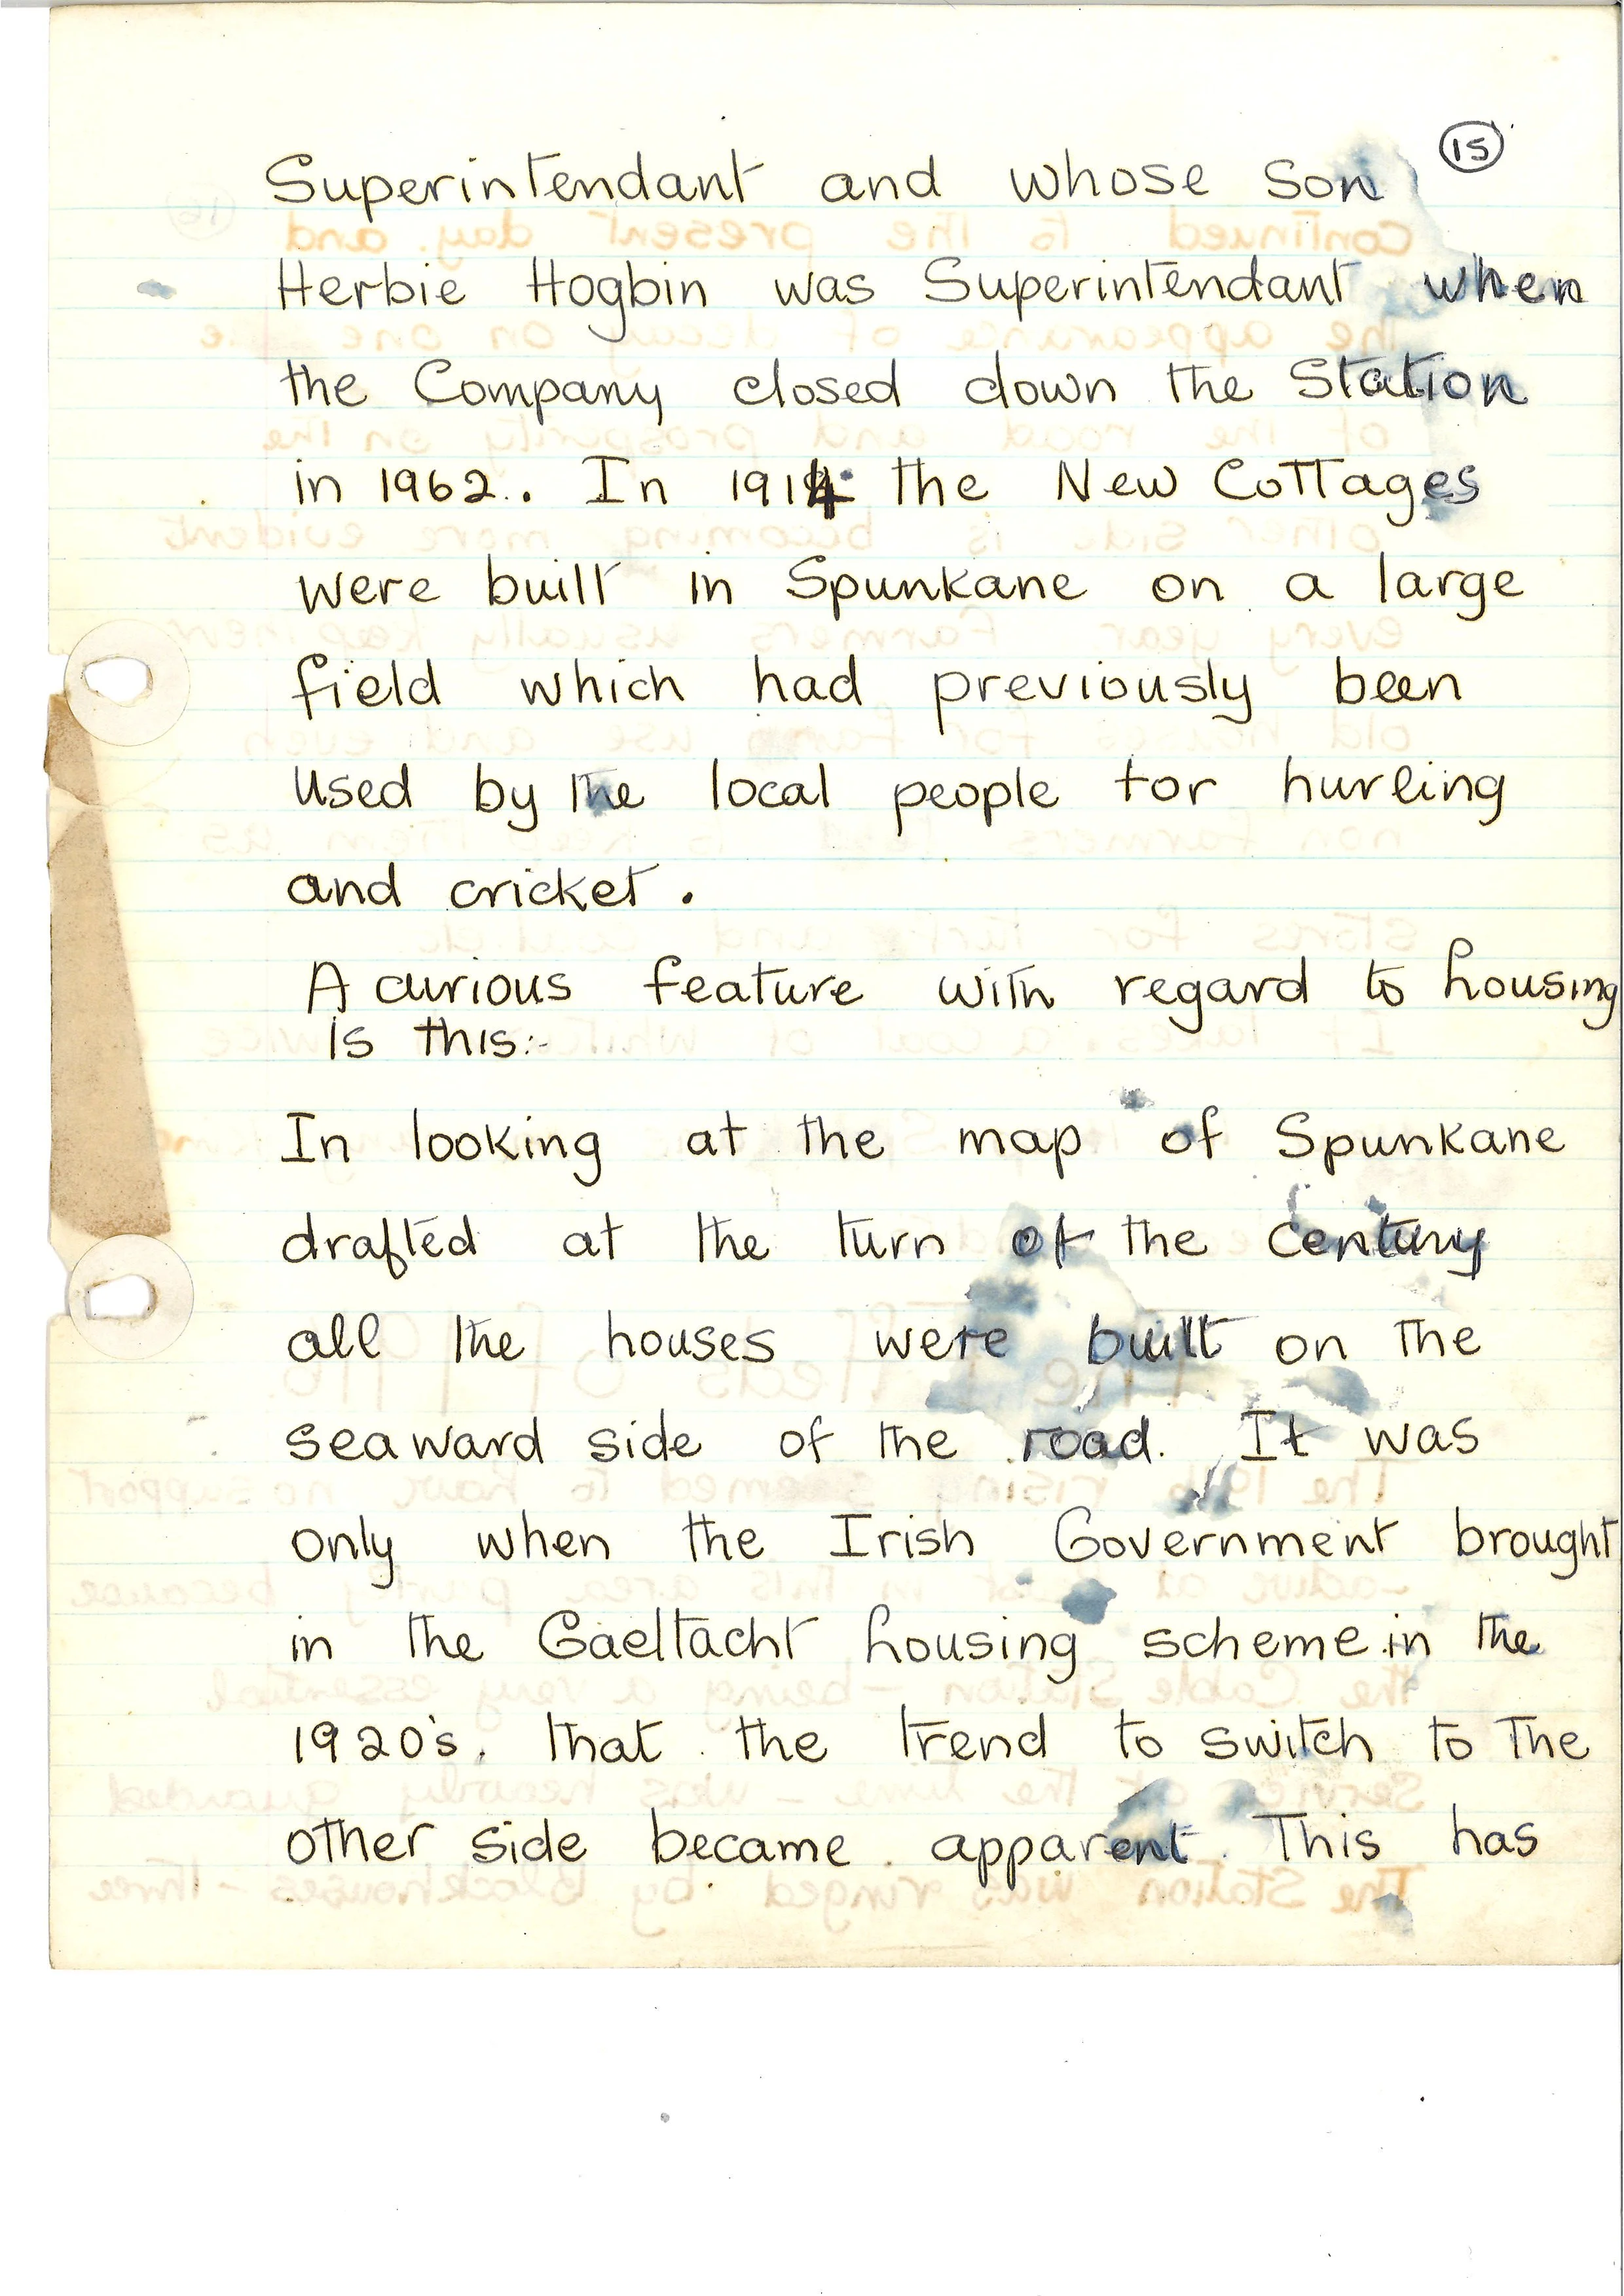 15
Superintendant and whose son
Herbie Hogbin was Superintendant when
the Company closed down the Station
in 1962. In 1914 the New Cottages
were built in Spunkane on a large
field which had previously been
used by the local people for hurling
and cricket.
A curious feature with regard to housing
is this:-
In looking at the map of Spunkane
drafted at the turn of the century
all the houses were built on the
seaward side of the road. It was
only when the Irish Government brought
in the Gaeltacht housing scheme in the
1920's. that the trend to switch to the
other side became apparent. This has